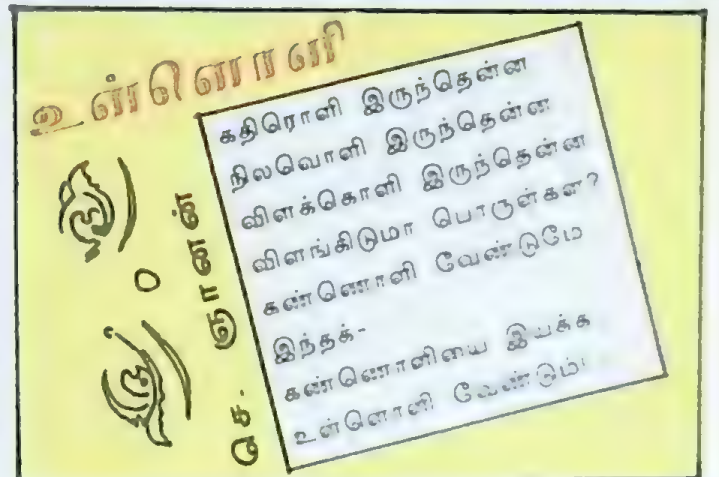 உள்ளொளி
செ. ஞானன்
கதிரொளி இருந்தென்ன
நிலவொளி இருந்தென்ன
விளக்கொளி இருந்தென்ன
விளங்கிடுமா பொருள்கள?
கண்ணொளி வேண்டுமே
இந்தக்-
கண்ணொளியை இயக்க
உள்ளொளி வேண்டும்!